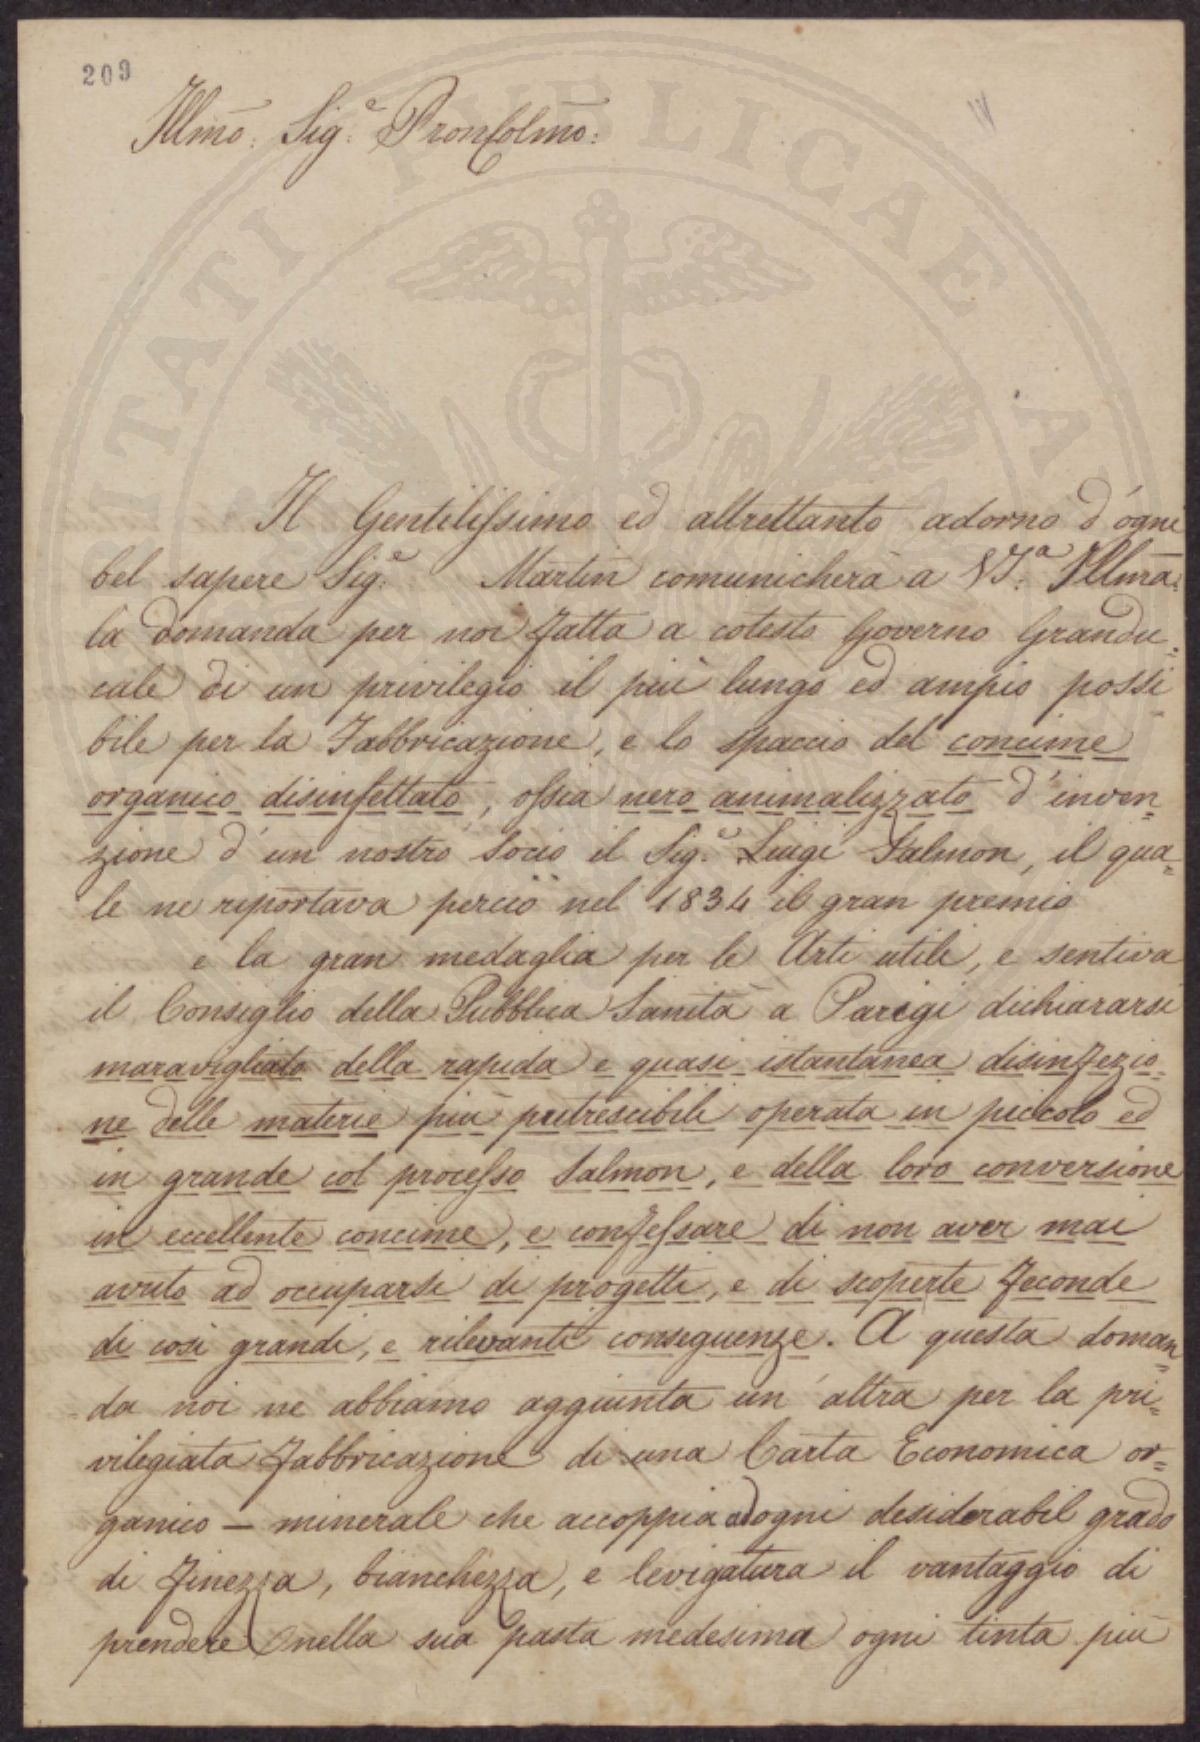 209
Illmo: Sig.e Pron Colmo:
Il Gentilissimo ed altrettanto adorno d'ogni
bel sapere Sig.e Martin comunicherà a VS.a Illma:
la domanda per noi fatta a cotesto Governo Grandu=
cale di un privilegio il più lungo ed ampio possi=
bile per la Fabbricazione, e lo spaccio del concime
organico disinfettato, ossia nero animalizzato d'inven=
zione d'un nostro Socio il Sig.e Luigi Salmon, il qua=
le ne riportava perciò nel 1834 il gran premio
e la gran medaglia per le Arti utili, e sentiva
il Consiglio della Pubblica Sanità a Parigi dichiararsi
maravigliato della rapida e quasi istantanea disinfezio=
ne delle materie più putrescibili operata in piccolo ed
in grande col processo Salmon, e della loro conversione
in eccellente concime, e confessare di non aver mai
avuto ad occuparsi di progetti, e di scoperte feconde
di così grandi, e rilevanti conseguenze. A questa doman=
da noi ne abbiamo aggiunta un'altra per la pri=
vilegiata fabbricazione di una Carta Economica or=
ganico – minerale che accoppia ad ogni desiderabil grado
di finezza, bianchezza, e levigatura il vantaggio di
prendere nella sua pasta medesima ogni tinta più